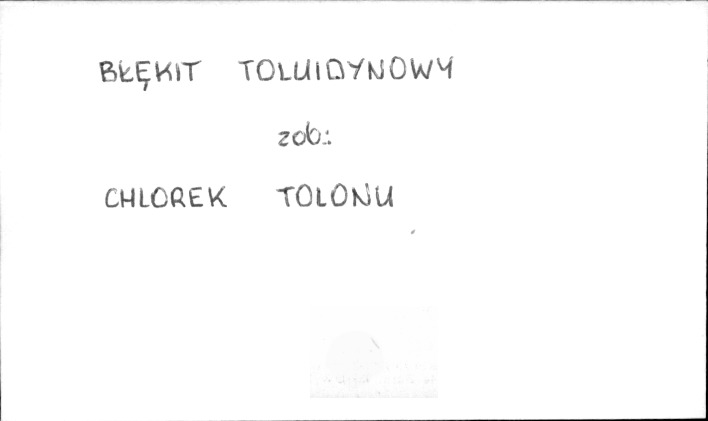 BŁĘKIT TOLUIDYNOWY
zob:
CHLOREK TOLONU